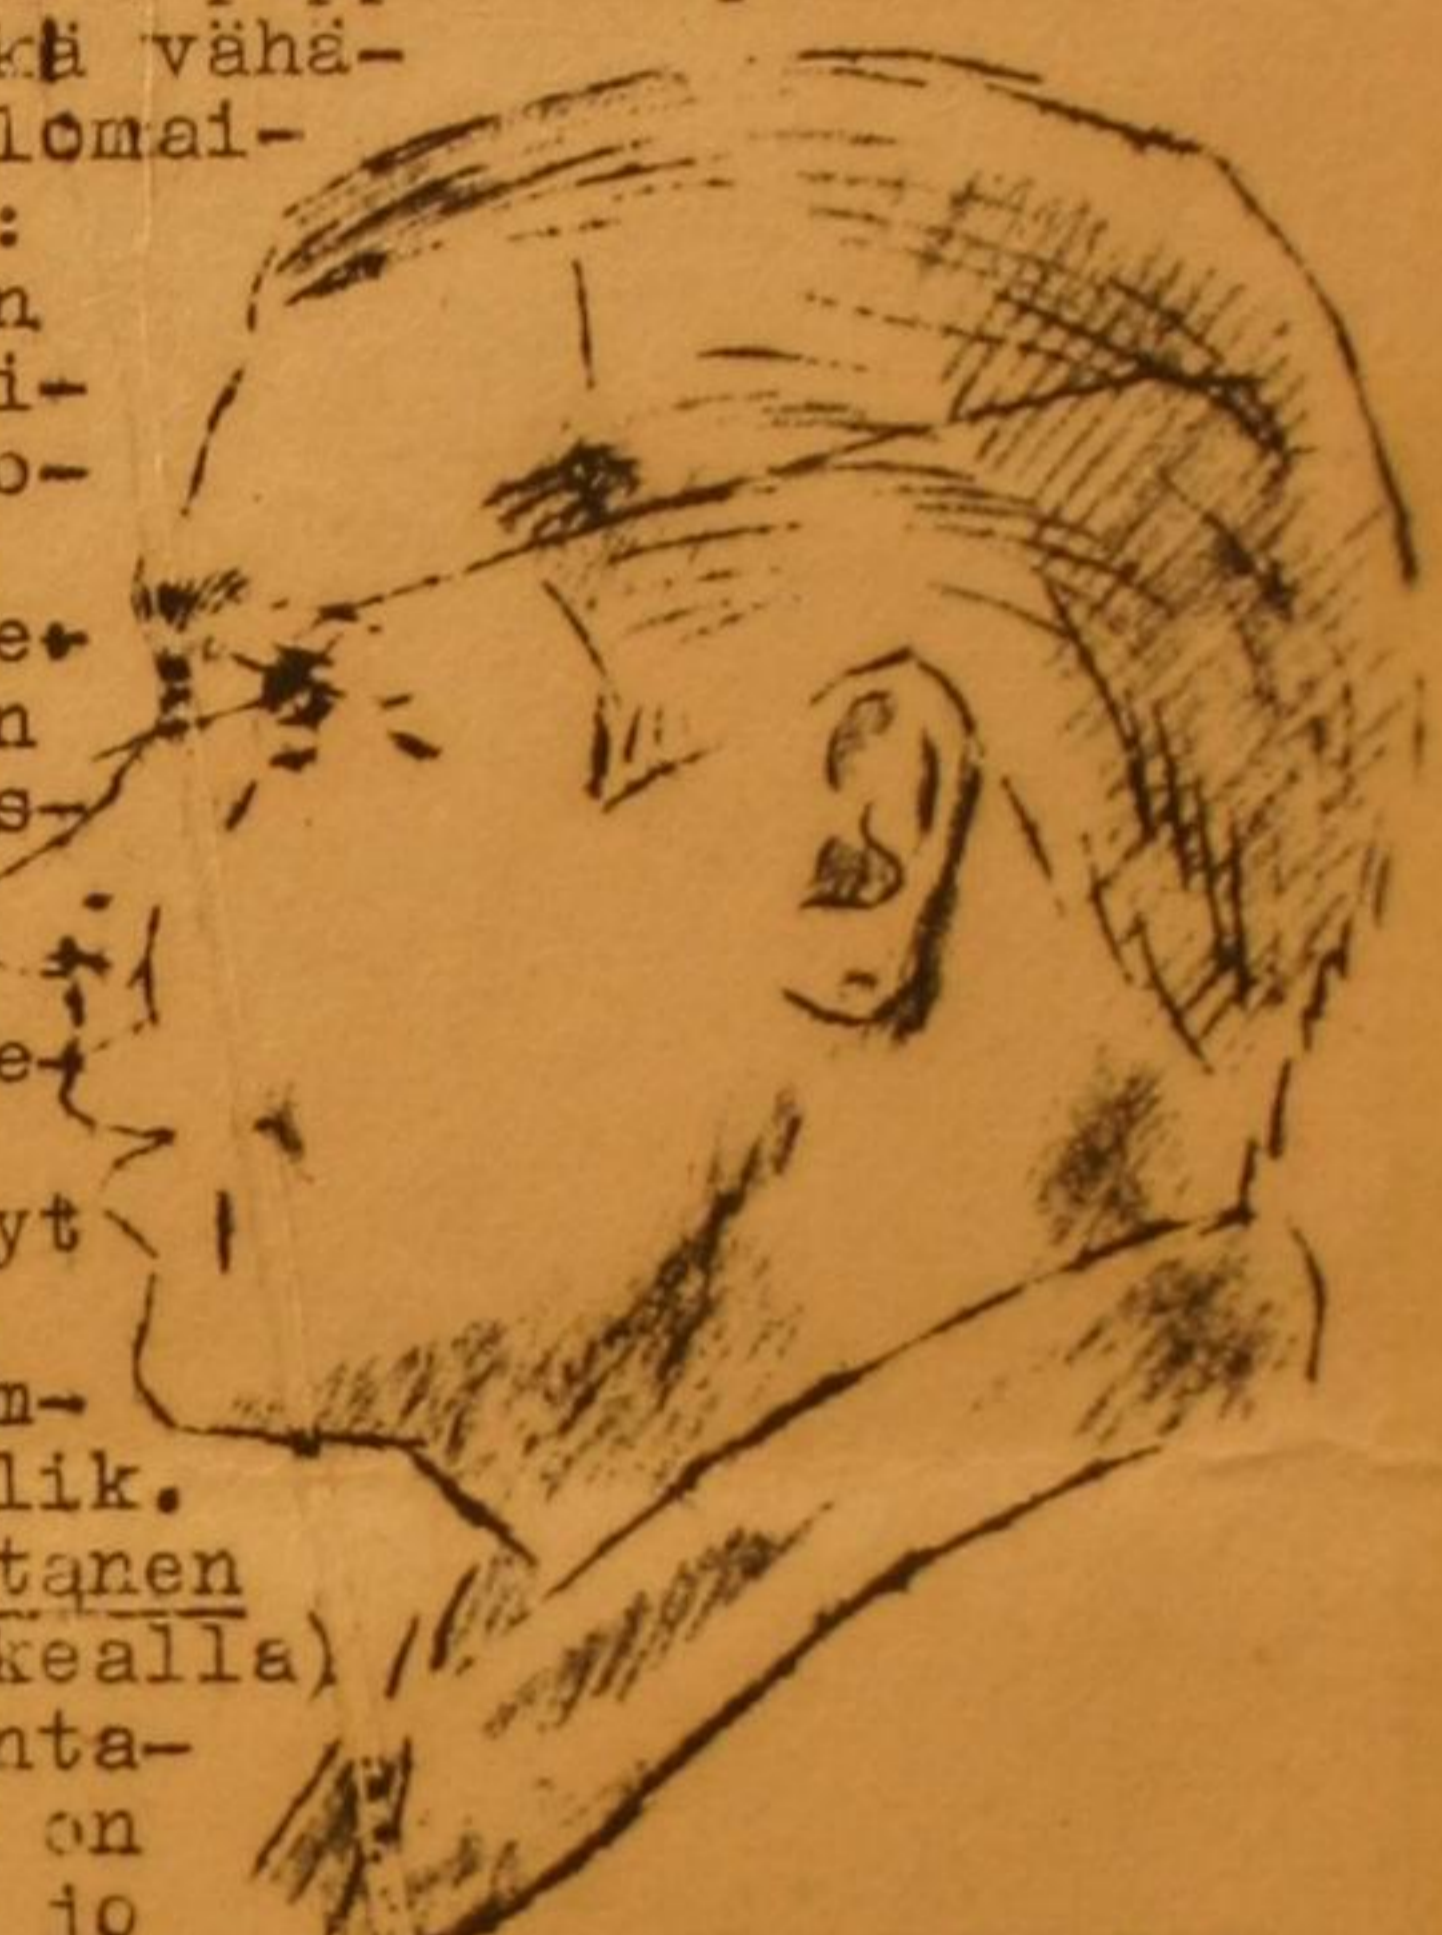 kä vähä-
lomai-
:
n
i-
b-
e-
n
s-
e-
yt
m-
lik.
tanen
kealla)
nta-
on
jo